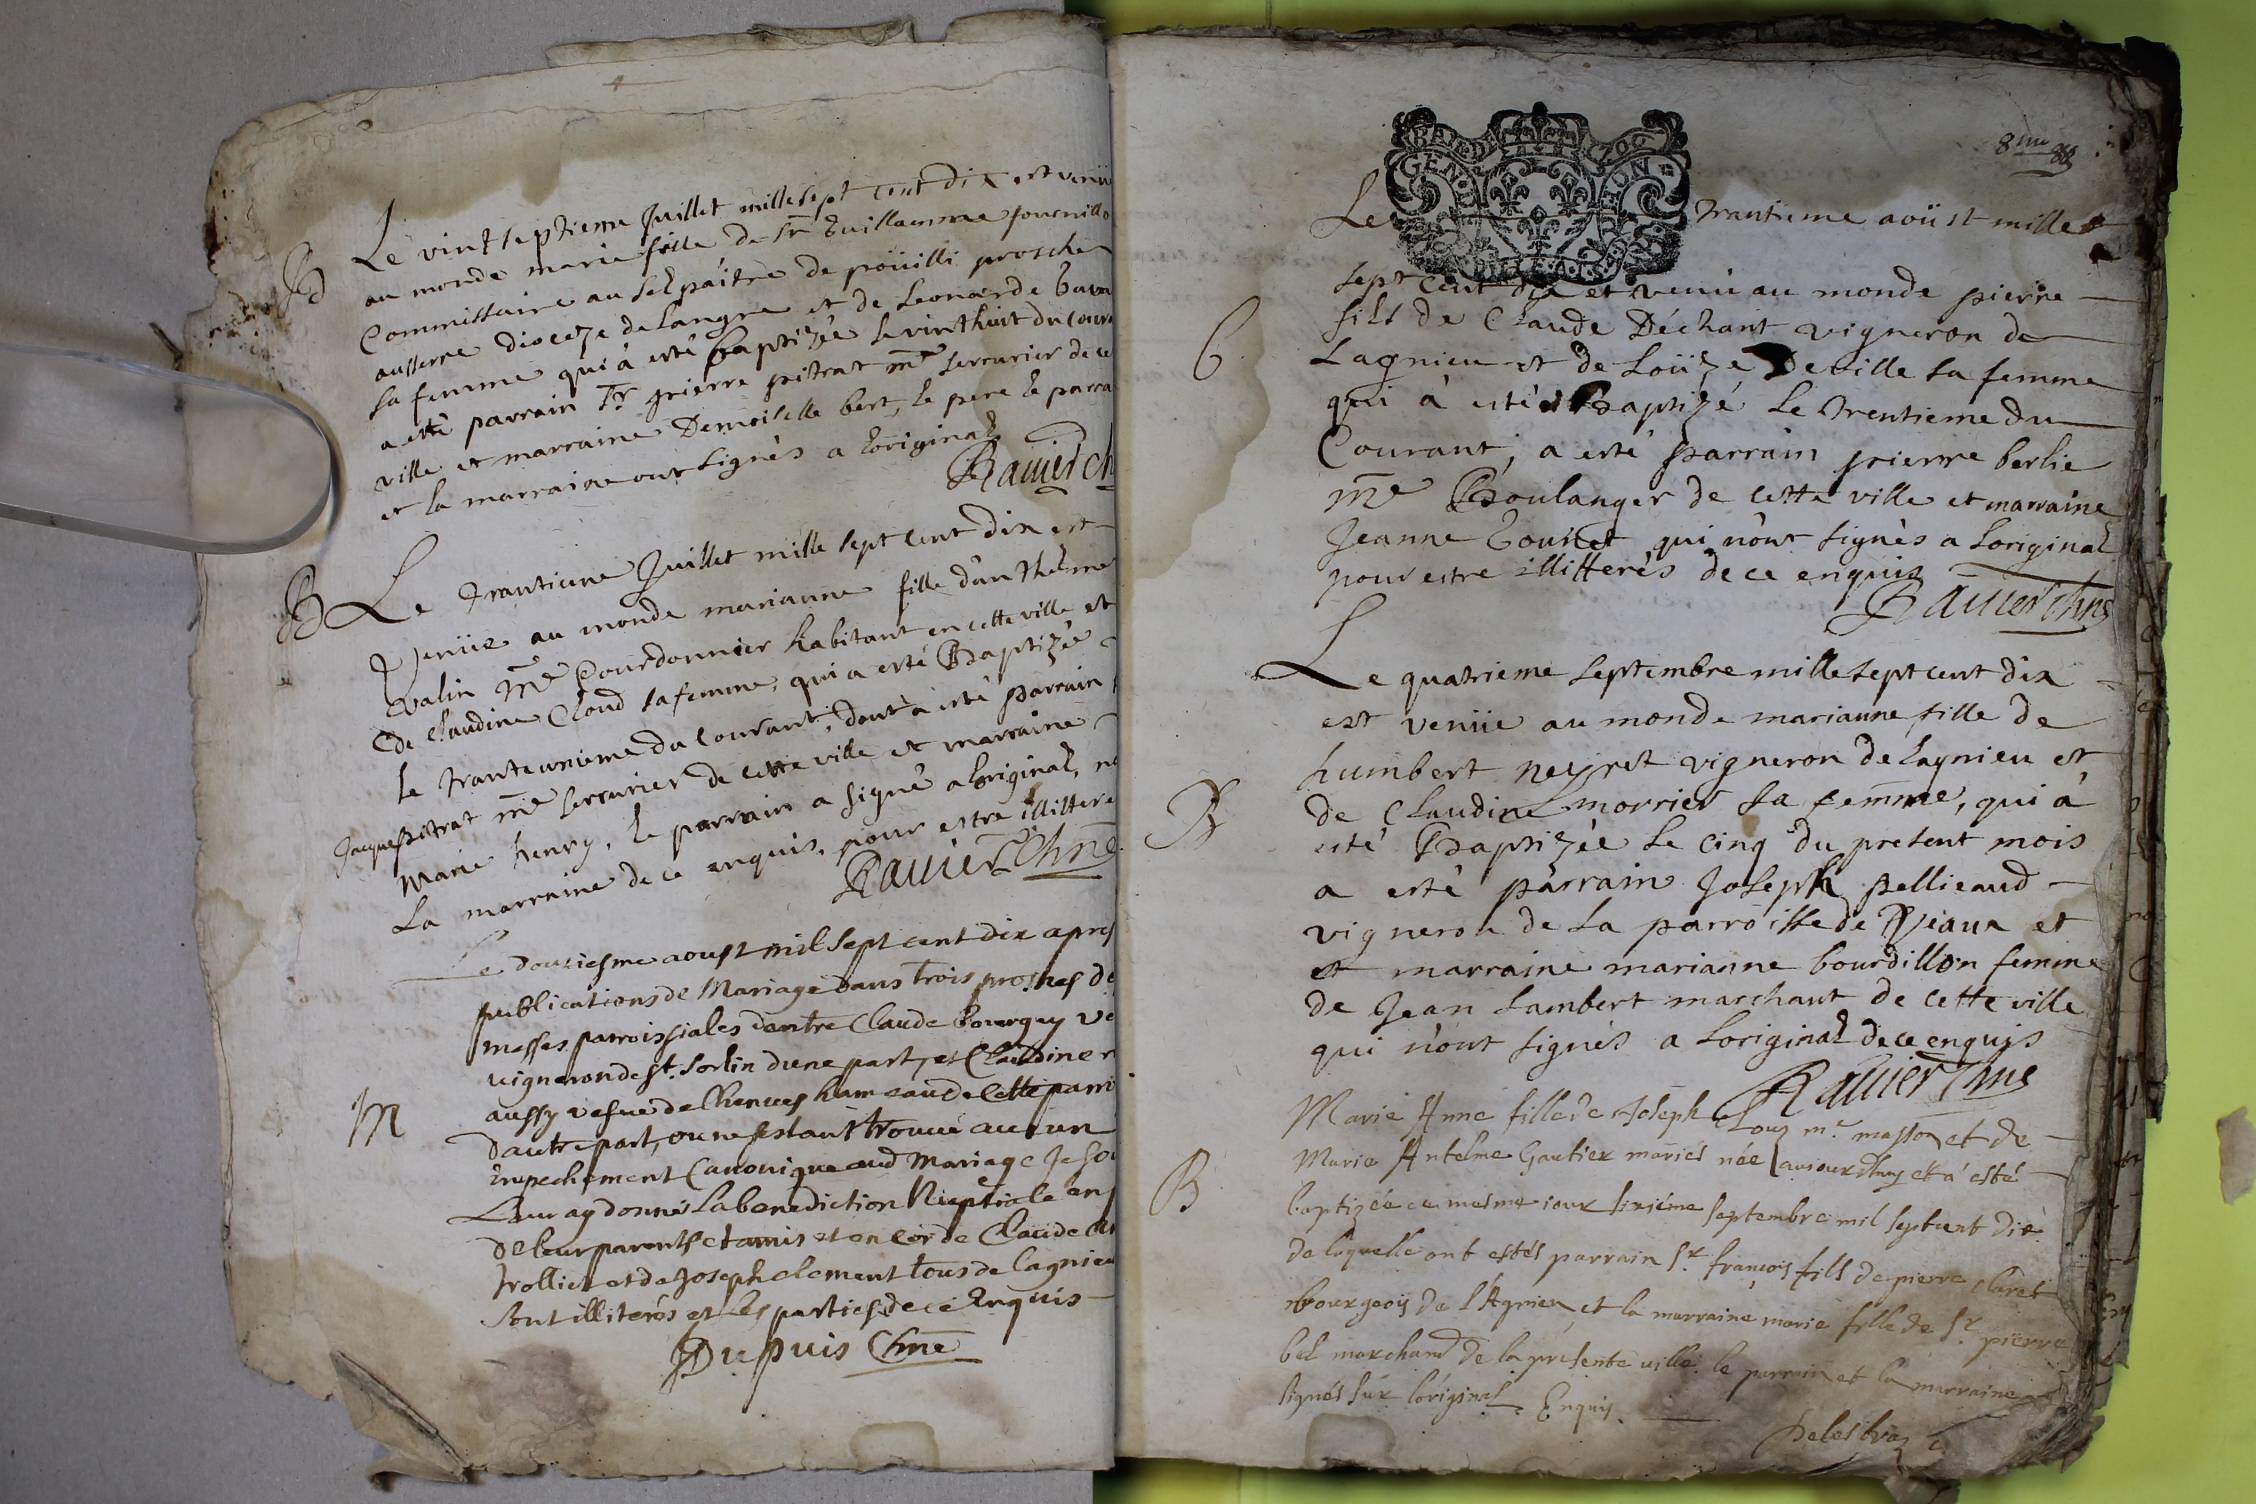 B
Le vint septieme Juillet mille sept cent dix est venüe
au monde marie fille de Sr Guillaumme fournillo
Commissaire au Selpaitre de poüilli prosche
ausserre dioceze de Langre et de Leonarde bavo
sa femme qui à esté baptizée le vint huit du Cour
a esté parrain Sr pierre pitrat me serrurier de ce
ville et marraine Demoiselle bert, le pere le parra
et la marraine ont signés a Loriginal
Ravier ch
B
Le Trantieme Juillet mille sept cent dix est
venüe au monde marianne fille d'anthelme
valin Me Courdonnier habitant en cette ville et
de Claudine Cloud sa femme, qui a esté Baptizée
le trante unieme du Courant, dont à esté parrain
Jacque pitrat me serrurier de cette ville et marraine
Marie henry, le parrain a signé a Loriginal, no
La marraine de ce enquis, pour estre illittere
Ravier Chne
M
Le douziesme aoust mil sept cent dix apres
publications de Mariage dans trois prosnes de
messes parroissiales dentre Claude Bourguy ve
vigneron de st. Sorlin dune part, et Claudine
aussy vefve de Chenves hameau de Cette parro
d'autre part, ou ne s'estant trouvé aucun
Empechement Canonique aud Mariage Je so
Leur ay donné La benediction Nuptiale en p
de leur parents et amis et en cor de Claude
trollier et de Joseph clement tous de Lagnieu
sont illiterés et les parties de ce Enquis
Dupuis Chne
8me
GEN
Le Trantieme aoüst mille
sept cent dix est venü au monde pierre
fils de Claude Déchant vigneron de
Lagnieu et de Loüize Deville sa femme
qui à esté Baptizé le Trentieme du
Courant, a esté parrain pierre berlie
Me Boulanger de cette ville et marraine
Jeanne Goustet qui n'ont signés a Loriginal
pour estre illitterés de ce enquis
Ravier Chne
Le quatrieme septembre mille sept cent dix
est venüe au monde marianne fille de
humbert neyret vigneron de Lagnieu et
de Claudine morrier sa femme, qui à
esté Baptizée le cinq du present mois
a esté parrain Joseph pellieaud
vigneron de La parroisse de Veaux et
et marraine marianne bourdillon femme
de Jean Lambert marchant de cette ville
qui n'ont signés a Loriginal de ce enquis
Ravier Chne
B
Marie Anne fille de Joseph Cloug me masson et de
Marie Antelme Gautier mariés née aujourdhuy et à esté
baptizée ce mesme jour sixiéme septembre mil sept cent dix
de laquelle ont estés parrain Sr. françois fils de pierre Claret
Bourgeois de L'Agnieu, et la marraine marie fille de Sr. pierre
bel marchand de la présente ville. le parrain et la marraine
signés sur l'original. Enquis.